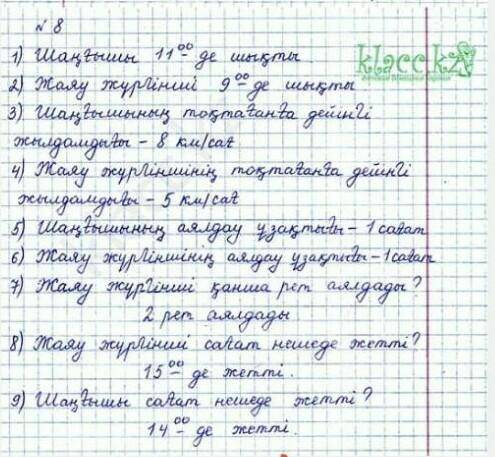 № 8
1) Шаңғышы 11⁰⁰ де шықты
klacc.kz
2) Жаяу жүргінші 9⁰⁰ де шықты
3) Шаңғышының тоқтағанға дейінгі
жылдамдығы – 8 км/сағ
4) Жаяу жүргіншінің тоқтағанға дейінгі
жылдамдығы – 5 км/сағ
5) Шаңғышының аялдау ұзақтығы – 1 сағат
6) Жаяу жүргіншінің аялдау ұзақтығы – 1 сағат
7) Жаяу жүргінші қанша рет аялдады?
2 рет аялдады
8) Жаяу жүргінші сағат нешеде жетті?
15⁰⁰ де жетті.
9) Шаңғышы сағат нешеде жетті?
14⁰⁰ де жетті.